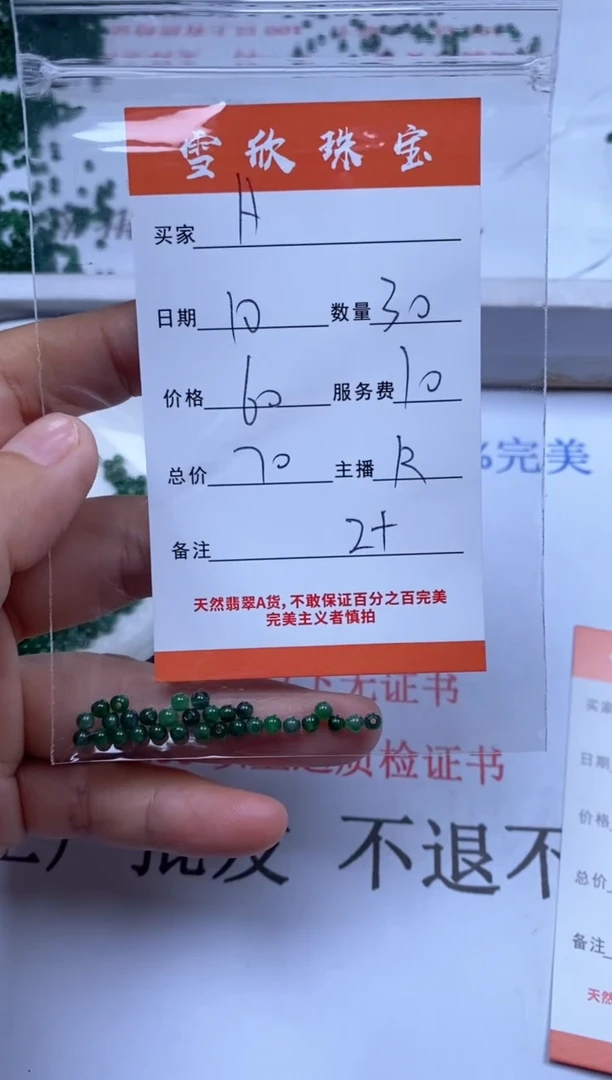 雪欣珠宝
买家 H
日期 10 数量 30
价格 60 服务费 10
总价 70 主播 R
备注 2+
天然翡翠A货,不敢保证百分之百完美
完美主义者慎拍
%完美
下无证书
质检证书
批发 不退不
买家
日期
价格
总价
备注
天然